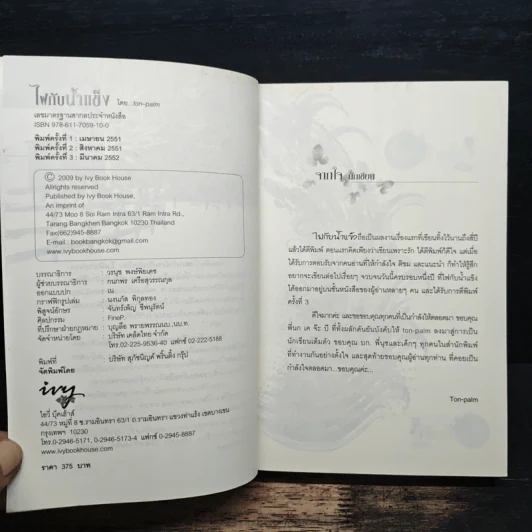 ไฟกับน้ำแข็ง โดย...ton-palm
เลขมาตรฐานสากลประจำหนังสือ
ISBN 978-611-7059-10-0
พิมพ์ครั้งที่ 1 : เมษายน 2551
พิมพ์ครั้งที่ 2 : สิงหาคม 2551
พิมพ์ครั้งที่ 3 : มีนาคม 2552
© 2009 by Ivy Book House
Allrights reserved
Published by Ivy Book House
An imprint of
44/73 Moo 8 Soi Ram Intra 63/1 Ram Intra Rd.,
Tarang Bangkhen Bangkok 10230.Thailand.
Fax(662)945-8887
E-mail : bookbangkok@gmail.com
www.ivybookhouse.com
บรรณาธิการ : วรนุช พงษ์พิยเดช
ผู้ช่วยบรรณาธิการ : กนกพร เตรียสุวรรณกุล
ออกแบบปก : เน
กราฟฟิกรูปเล่ม : นงนภัส พิกุลทอง
พิสูจน์อักษร : จันทร์เพ็ญ ชีพนุรัตน์
ศิลปกรรม : FineP.
ที่ปรึกษาฝ่ายกฎหมาย : บุญตือ พรายพรรณนน.,นบ.ท.
จัดจำหน่ายโดย : บริษัท เคล็ดไทย จำกัด
โทร.02-225-9536-40 แฟกซ์ 02-222-5188
พิมพ์ที่ : บริษัท สุภัชนิญค์ พริ้นติ้ง กรุ๊ป
จัดพิมพ์โดย
ivy
ไอวี่ บุ๊คเฮ้าส์
44/73 หมู่ที่ 8 ซ.รามอินทรา 63/1 ถ.รามอินทรา แขวงท่าแร้ง เขตบางเขน
กรุงเทพฯ 10230
โทร.0-2946-5171, 0-2946-5173-4 แฟกซ์ 0-2945-8887
www.ivybookhouse.com
ราคา 375 บาท
จากใจ นักเขียน
ไฟกับน้ำแข็งถือเป็นผลงานเรื่องแรกที่เขียนทิ้งไว้นานถึงสี่ปี
แล้วได้ตีพิมพ์ ตอนแรกคิดเพียงว่าเขียนเพราะรัก ได้ตีพิมพ์ก็ดีใจ แต่เมื่อ
ได้รับการตอบรับจากคนอ่านที่ให้กำลังใจ ติชม และแนะนำ ก็ทำให้รู้สึก
อยากจะเขียนต่อไปเรื่อยๆ จวบจนวันนี้ครบรอบหนึ่งปี ที่ไฟกับน้ำแข็ง
ได้ออกมาอยู่บนชั้นหนังสือของผู้อ่านหลายๆ คน และได้รับการตีพิมพ์
ครั้งที่ 3
ดีใจมากค่ะ และขอขอบคุณทุกคนที่เป็นกำลังใจให้ตลอดมา ขอบคุณ
พี่นก เค จ๊ะ บี ที่ทั้งผลักดันยันบังคับให้ ton-palm ลงมาสู่การเป็น
นักเขียนเต็มตัว ขอบคุณ บก. พี่นุชและเด็กๆ ทุกคนในสำนักพิมพ์
ที่ทำงานกันอย่างตั้งใจ และสุดท้ายขอบคุณผู้อ่านทุกท่าน ที่คอยเป็น
กำลังใจตลอดมา...ขอบคุณค่ะ...
Ton-palm